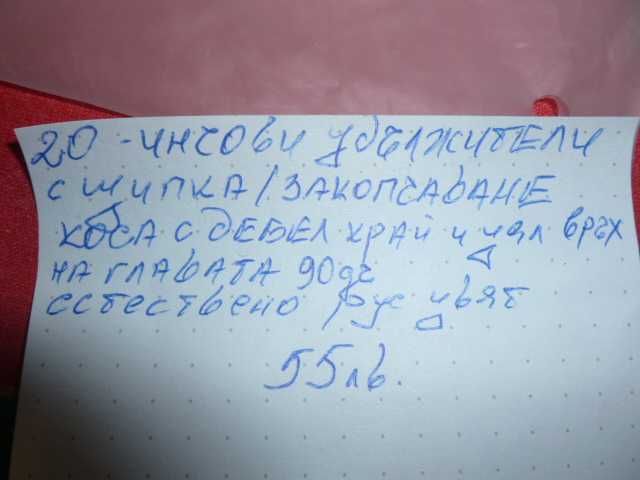 20 - инчови удължители
с шипка / закопчаване
коса с дебел край и цял връх
на главата 90 дг
естествено рус цвят
55 лв.